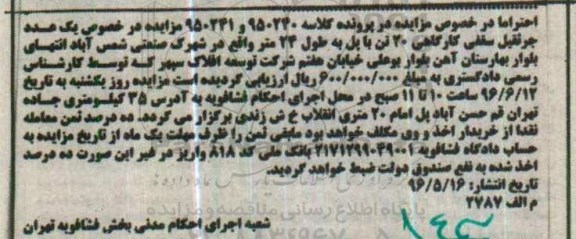 احتراما در خصوص مزایده در پرونده کلاسه ۹۵۰۲۴۰ و ۹۵۰۲۴۱ مزایده در خصوص یک عدد
جرثقیل سقفی کارگاهی ۲۰ تن با پل به طول ۲۴ متر واقع در شهرک صنعتی شمس آباد انتهای
بلوار بهارستان آهن بلوار بوعلی خیابان هفتم شرکت توسعه افلاک سپهر که توسط کارشناس
رسمی دادگستری به مبلغ ۶۰۰/۰۰۰/۰۰۰ ریال ارزیابی گردیده است مزایده روز یکشنبه به تاریخ
۹۶/۶/۱۲ ساعت ۱۰ تا ۱۱ صبح در محل اجرای احکام فشافویه به آدرس ۳۵ کیلومتری جاده
تهران قم حسن آباد پل امام ۲۰ متری انقلاب خ ش زندی برگزار می گردد. ده درصد ثمن معامله
نقدا از خریدار اخذ و وی مکلف خواهد بود مابقی ثمن را ظرف مهلت یک ماه از تاریخ مزایده به
حساب دادگاه فشافویه ۲۱۷۱۲۹۹۰۴۹۰۰۱ بانک ملی کد ۸۱۸ واریز در غیر این صورت ده درصد
اخذ شده به نفع صندوق دولت ضبط خواهد گردید.
تاریخ انتشار: ۹۶/۵/۱۶
م الف ۲۷۸۷
شعبه اجرای احکام مدنی بخش فشافویه تهران
پایگاه اطلاع رسانی مناقصه و مزایده